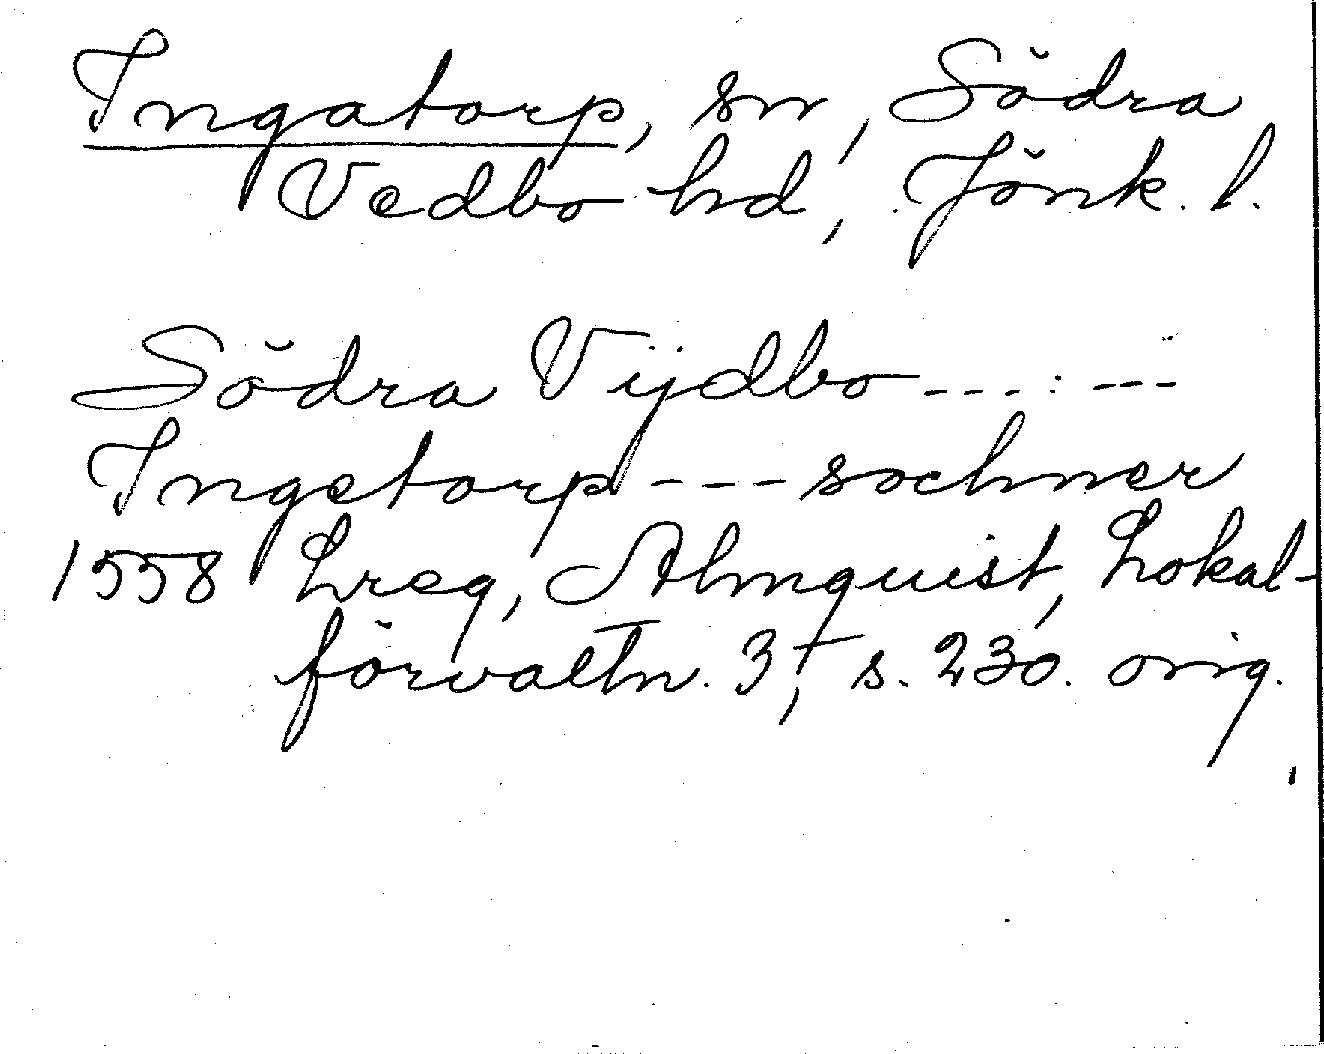 Ingatorp, sn, Södra
Vedbo hd, Jönk. l.
Södra Vijdbo ---: ---
Ingetorp --- sochner
1558 Lreg, Almquist, Lokal-
förvaltn. 3, s. 230. orig.